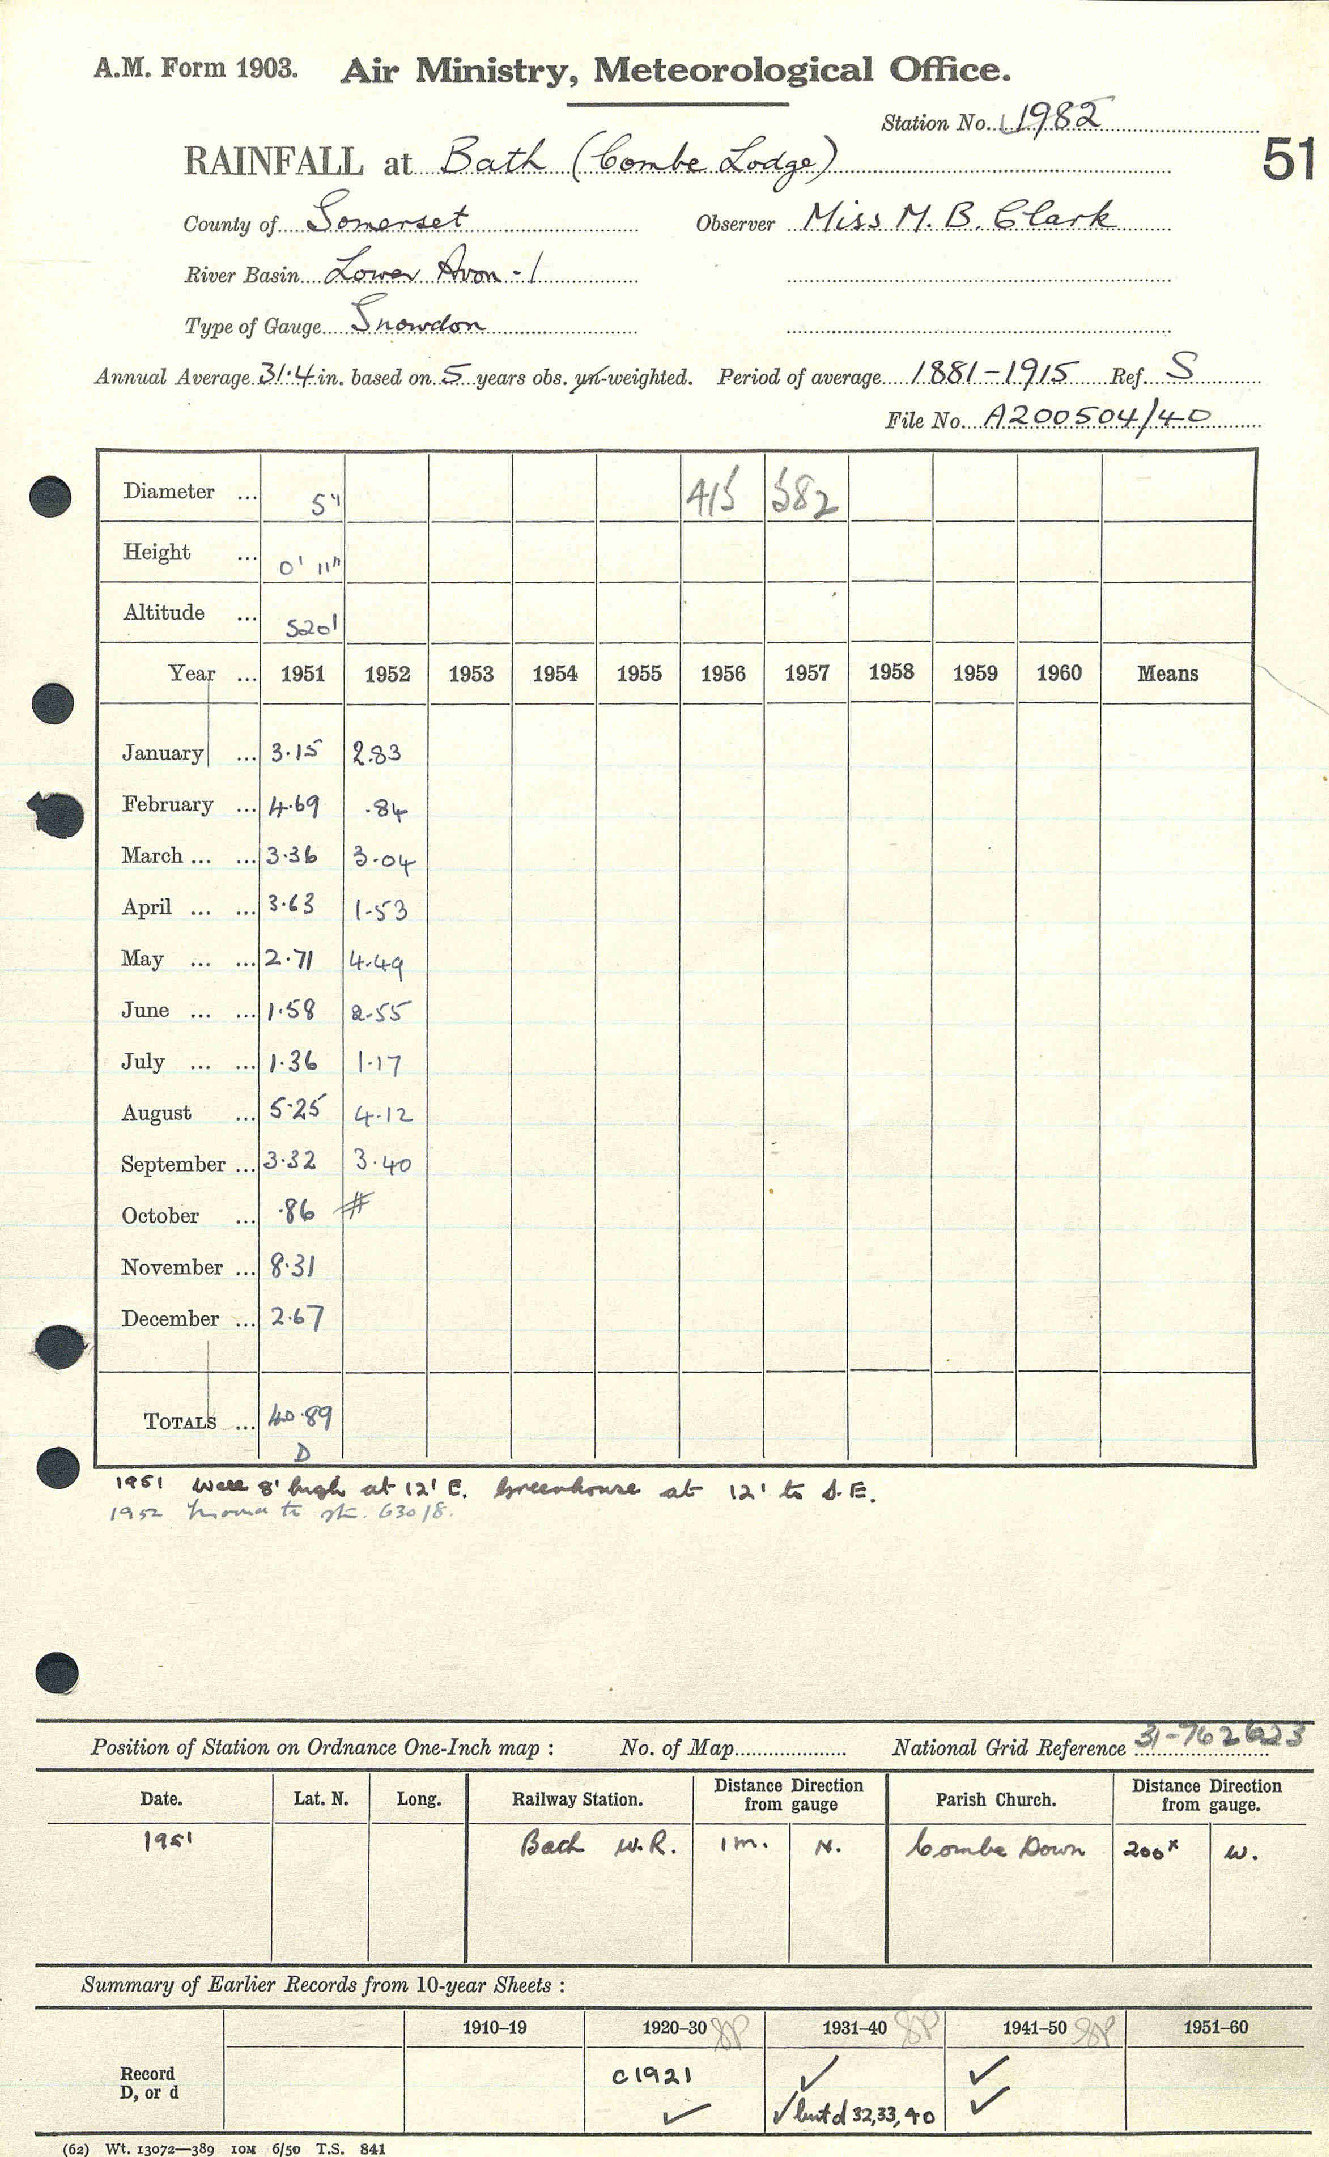 A.M. Form 1903. Air Ministry, Meteorological Office.
Station No. 1982
51
RAINFALL at Bath (Combe Lodge)
County of Somerset Observer Miss M. B. Clark
River Basin Lower Avon - 1
Type of Gauge Snowdon
Annual Average 31.4 in. based on 5 years obs. un-weighted. Period of average 1881-1915 Ref. S
File No. A200504/40
Diameter ... 5" 415 582
Height ... 0' 11"
Altitude ... 520'
Year ... 1951 1952 1953 1954 1955 1956 1957 1958 1959 1960 Means
January ... 3.15 2.83
February ... 4.69 .84
March ... ... 3.36 3.04
April ... ... 3.63 1.53
May ... ... 2.71 4.49
June ... ... 1.58 2.55
July ... ... 1.36 1.17
August ... 5.25 4.12
September ... 3.32 3.40
October ... .86 #
November ... 8.31
December ... 2.67
TOTALS ... 40.89
D
1951 Wall 8' high at 12' E. Greenhouse at 12' to S.E.
1952 to stn. 63018.
Position of Station on Ordnance One-Inch map : No. of Map National Grid Reference 31-762623
Date. Lat. N. Long. Railway Station. Distance Direction from gauge Parish Church. Distance Direction from gauge.
1951 Bath W.R. 1 m. N. Combe Down 200x W.
Summary of Earlier Records from 10-year Sheets :
1910–19 1920–30 1931–40 1941–50 1951–60
Record D, or d c1921 ✓ ✓
✓ ✓ but d 32,33,40 ✓
(62) Wt. 13072—389 10M 6/50 T.S. 841